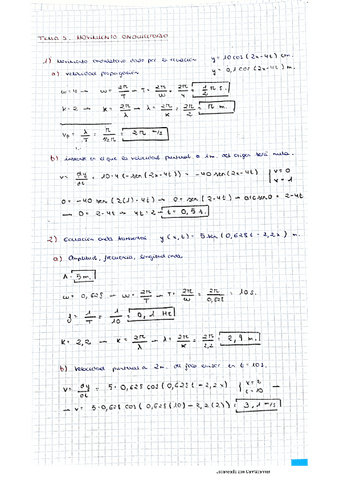 TEMA 5. MOVIMIENTO ONDULATORIO
1) Movimiento ondulatorio dado por la ecuación y = 10 cos (2x - 4t) cm.
a) velocidad propagación y = 0,1 cos (2x - 4t) m.
w = 4 → w = 2π/T → T = 2π/w = 2π/4 = 1/2 π s.
K = 2 → K = 2π/λ → λ = 2π/K = 2π/2 = π m.
Vp = λ/T = π/½π = 2π m/s
b) instante en el que la velocidad puntual a 1m. del origen será nula.
v = dy/dt = 10·4 (-sen (2x - 4t)) = -40 sen (2x - 4t) { v = 0
0 = -40 sen (2(1) - 4t) → 0 = sen (2 - 4t) → 0 = 2 - 4t
→ 0 = 2 - 4t → 4t = 2 → t = 0,5 s.
2) Ecuación onda y(x,t) = 5 sen (0,628t - 2,2x) m.
a) Amplitud, frecuencia, longitud onda
A = 5 m.
w = 0,628 → w = 2π/T → T = 2π/w = 2π/0,628 = 10 s.
f = 1/T = 1/10 = 0,1 Hz
K = 2,2 → K = 2π/λ → λ = 2π/K = 2π/2,2 = 2,9 m.
b) Velocidad puntual a 2m. del foco emisor en t = 10 s.
v = dy/dt = 5·0,628 cos (0,628t - 2,2x) { x = 2 t = 10
→ v = 5·0,628 cos (0,628(10) - 2,2(2)) = 3,1 m/s.
Escaneado con CamScanner